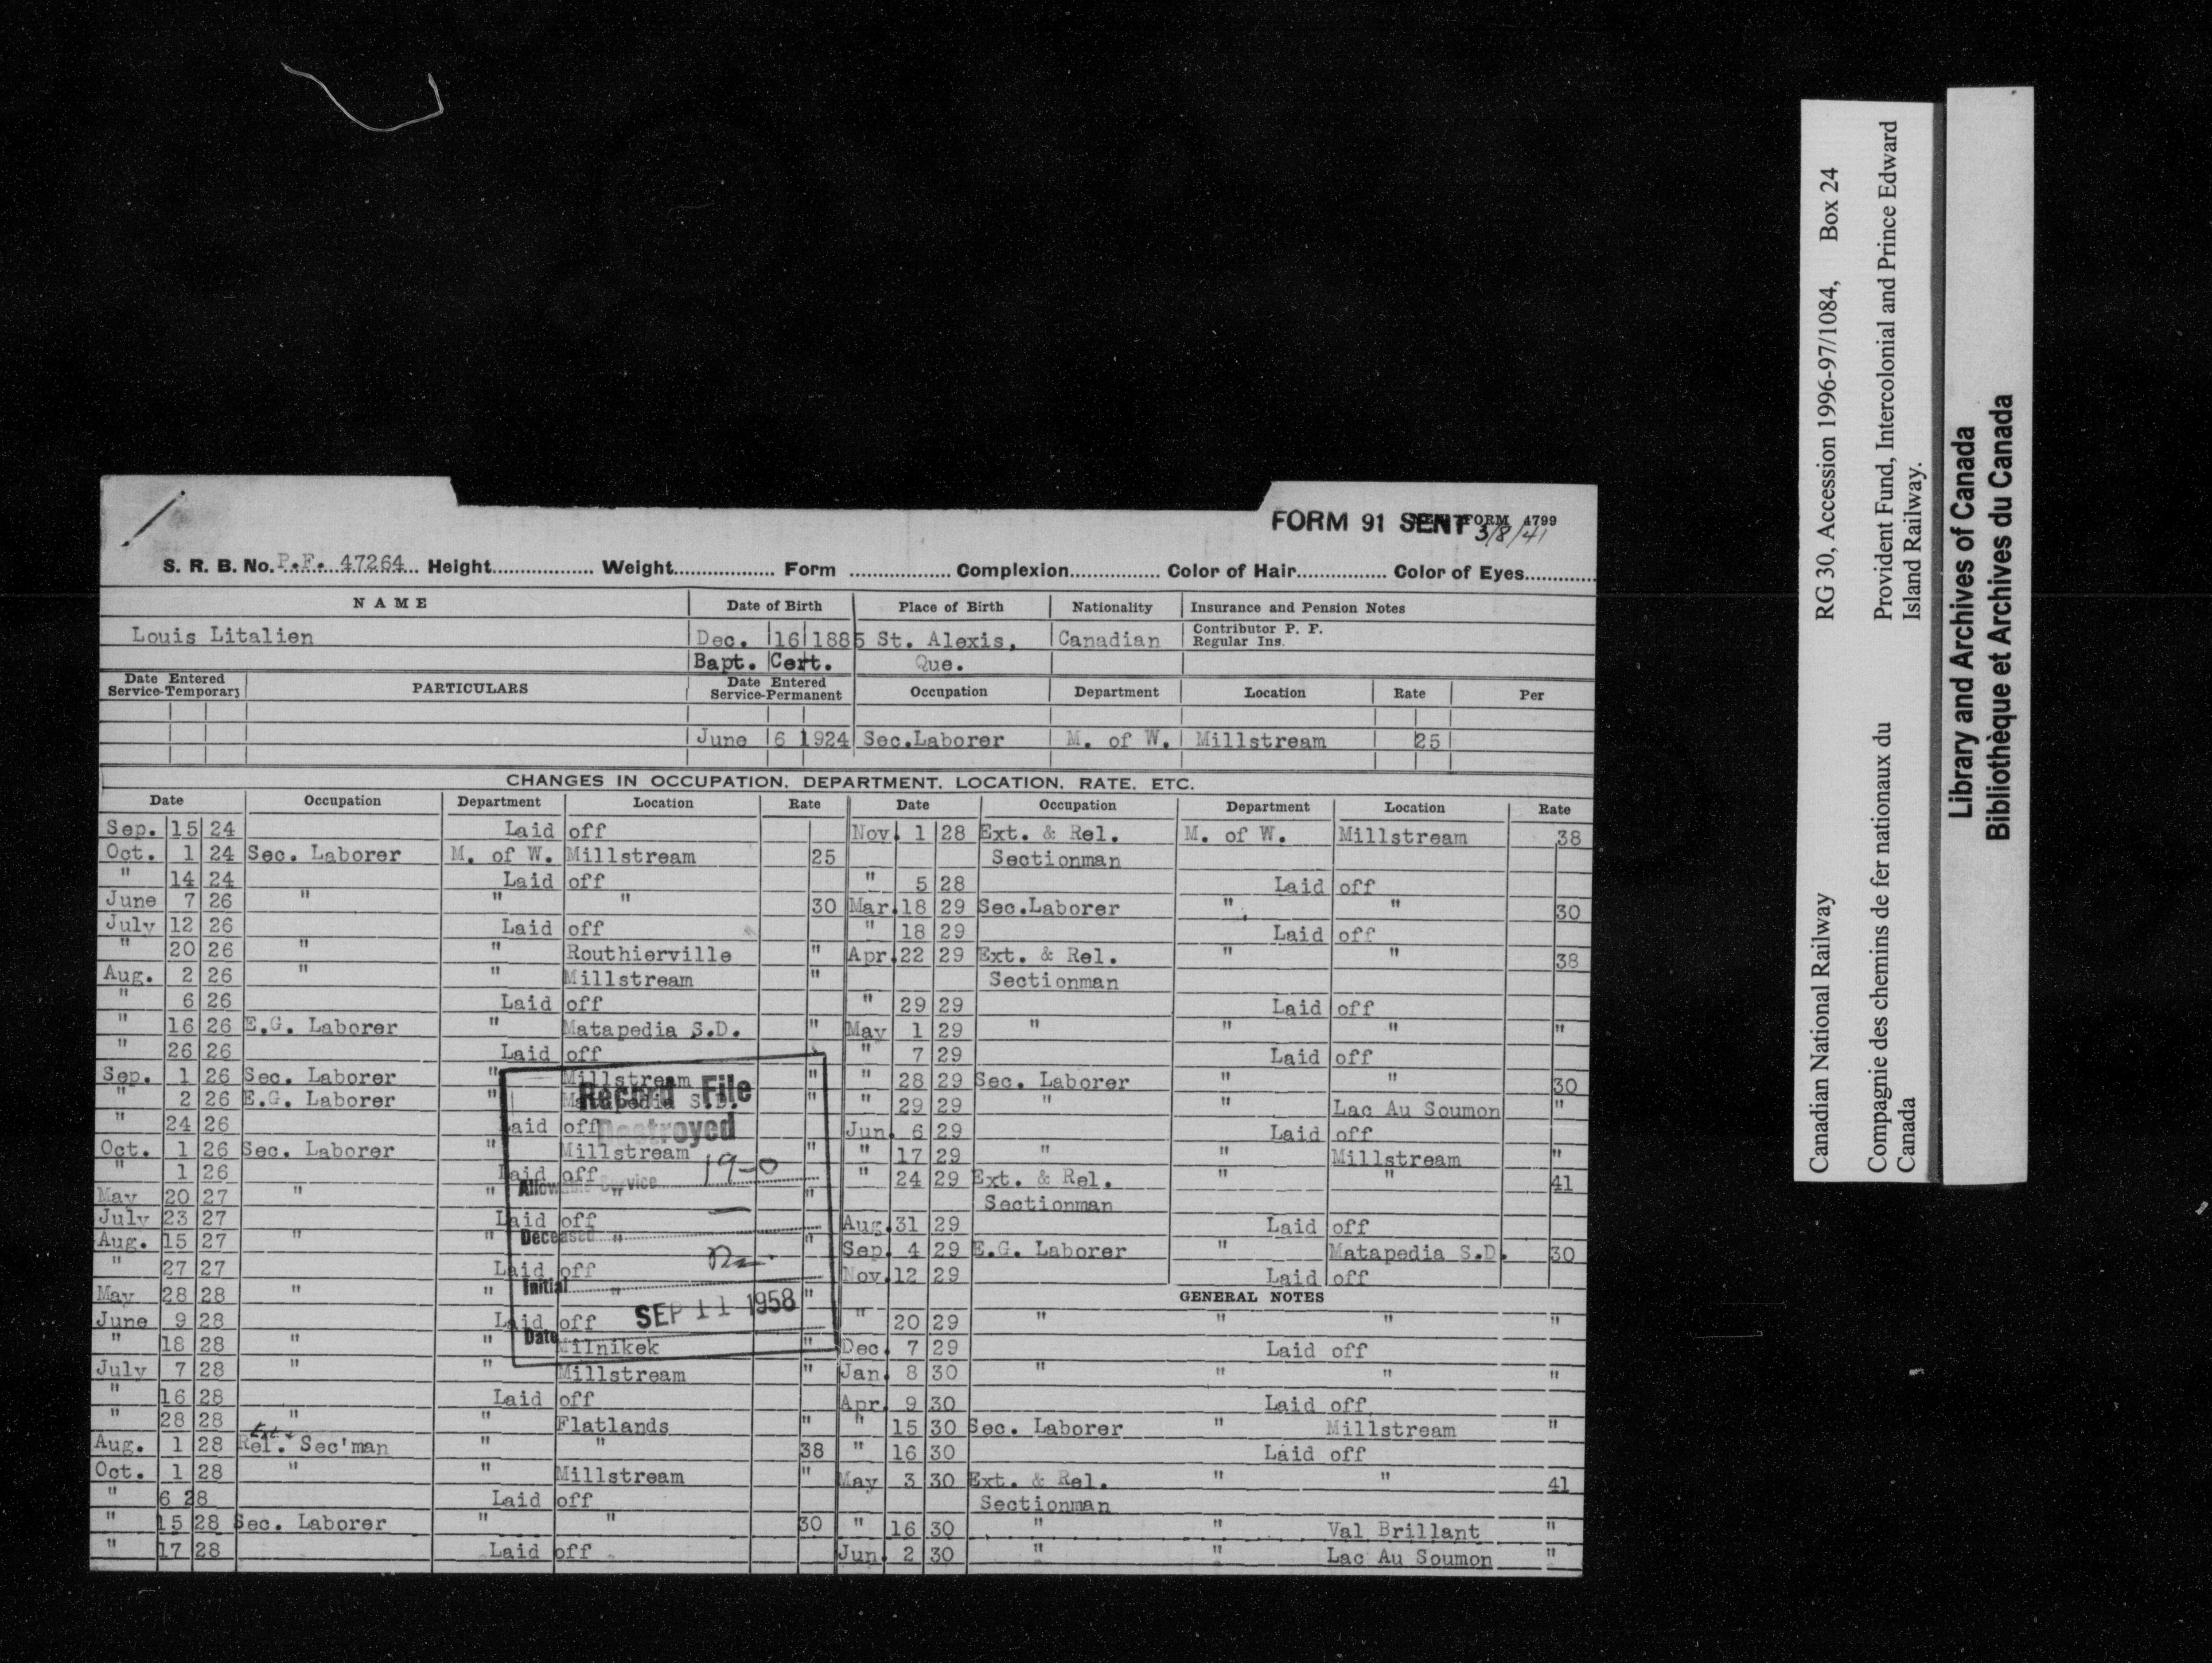 FORM 91 SENT FORM 4799
3/8/41
S. R. B. No. P.F. 47264 Height Weight Form Complexion Color of Hair Color of Eyes
NAME Date of Birth Place of Birth Nationality Insurance and Pension Notes
Louis Litalien Dec. 16 1885 St. Alexis, Canadian Contributor P. F.
Regular Ins.
Bapt. Cert. Que.
Date Entered Service-Temporary PARTICULARS Date Entered Service-Permanent Occupation Department Location Rate Per
June 6 1924 Sec.Laborer M. of W. Millstream 25
CHANGES IN OCCUPATION, DEPARTMENT, LOCATION, RATE, ETC.
Date Occupation Department Location Rate
Sep. 15 24 Laid off
Oct. 1 24 Sec. Laborer M. of W. Millstream 25
" 14 24 Laid off
June 7 26 " " " 30
July 12 26 Laid off
" 20 26 " " Routhierville "
Aug. 2 26 " " Millstream "
" 6 26 Laid off
" 16 26 E.G. Laborer " Matapedia S.D. "
" 26 26 Laid off
Sep. 1 26 Sec. Laborer " Millstream "
" 2 26 E.G. Laborer " Matapedia S.D. "
" 24 26 Laid off
Oct. 1 26 Sec. Laborer " Millstream "
" 1 26 Laid off
May 20 27 " " " "
July 23 27 Laid off
Aug. 15 27 " " " "
" 27 27 Laid off
May 28 28 " " " "
June 9 28 Laid off
" 18 28 " " Milnikek "
July 7 28 " " Millstream "
" 16 28 Laid off
" 28 28 " " Flatlands "
Ext. &
Aug. 1 28 Rel. Sec'man " " 38
Oct. 1 28 " " Millstream "
" 6 28 Laid off
" 15 28 Sec. Laborer " " 30
" 17 28 Laid off
Record File
Destroyed
19-0
Allowable Service
Deceased
Initial
SEP 11 1958
Date
Date Occupation Department Location Rate
Nov. 1 28 Ext. & Rel. M. of W. Millstream 38
Sectionman
" 5 28 Laid off
Mar. 18 29 Sec.Laborer " " 30
" 18 29 Laid off
Apr. 22 29 Ext. & Rel. " " 38
Sectionman
" 29 29 Laid off
May 1 29 " " " "
" 7 29 Laid off
" 28 29 Sec. Laborer " " 30
" 29 29 " " Lac Au Soumon "
Jun. 6 29 Laid off
" 17 29 " " Millstream "
" 24 29 Ext. & Rel. " " 41
Sectionman
Aug. 31 29 Laid off
Sep. 4 29 E.G. Laborer " Matapedia S.D. 30
Nov. 12 29 Laid off
GENERAL NOTES
" 20 29 " " " "
Dec. 7 29 Laid off
Jan. 8 30 " " " "
Apr. 9 30 Laid off
" 15 30 Sec. Laborer " Millstream "
" 16 30 Laid off
May 3 30 Ext. & Rel. " " 41
Sectionman
" 16 30 " " Val Brillant "
Jun. 2 30 " " Lac Au Soumon "
Canadian National Railway RG 30, Accession 1996-97/1084, Box 24
Compagnie des chemins de fer nationaux du Provident Fund, Intercolonial and Prince Edward
Canada Island Railway.
Library and Archives of Canada
Bibliothèque et Archives du Canada